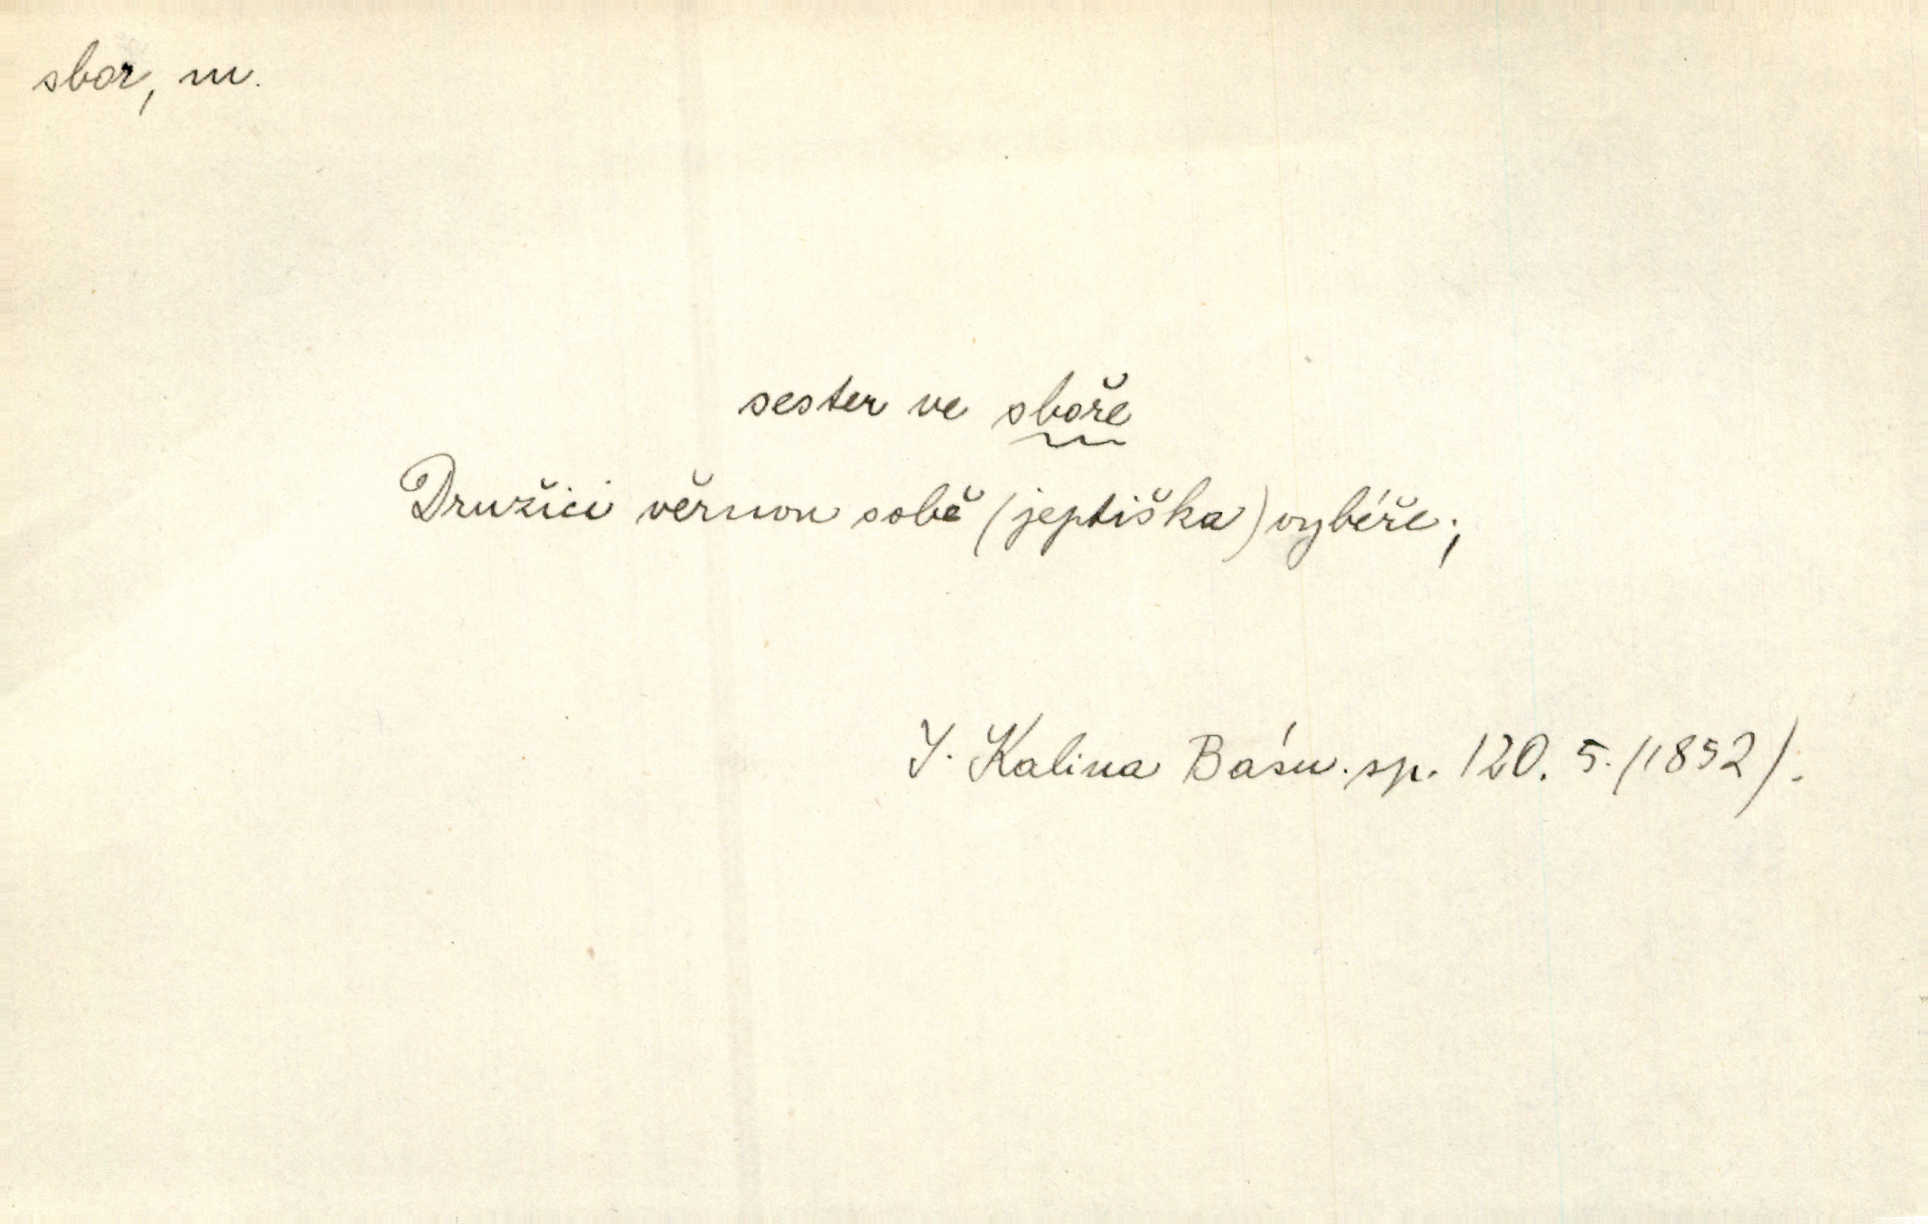 sbor, m.
sester ve sboře
Družici věrnou sobě (jeptiška) vybéře;
J. Kalina Básn. sp. 120. 5. (1852).